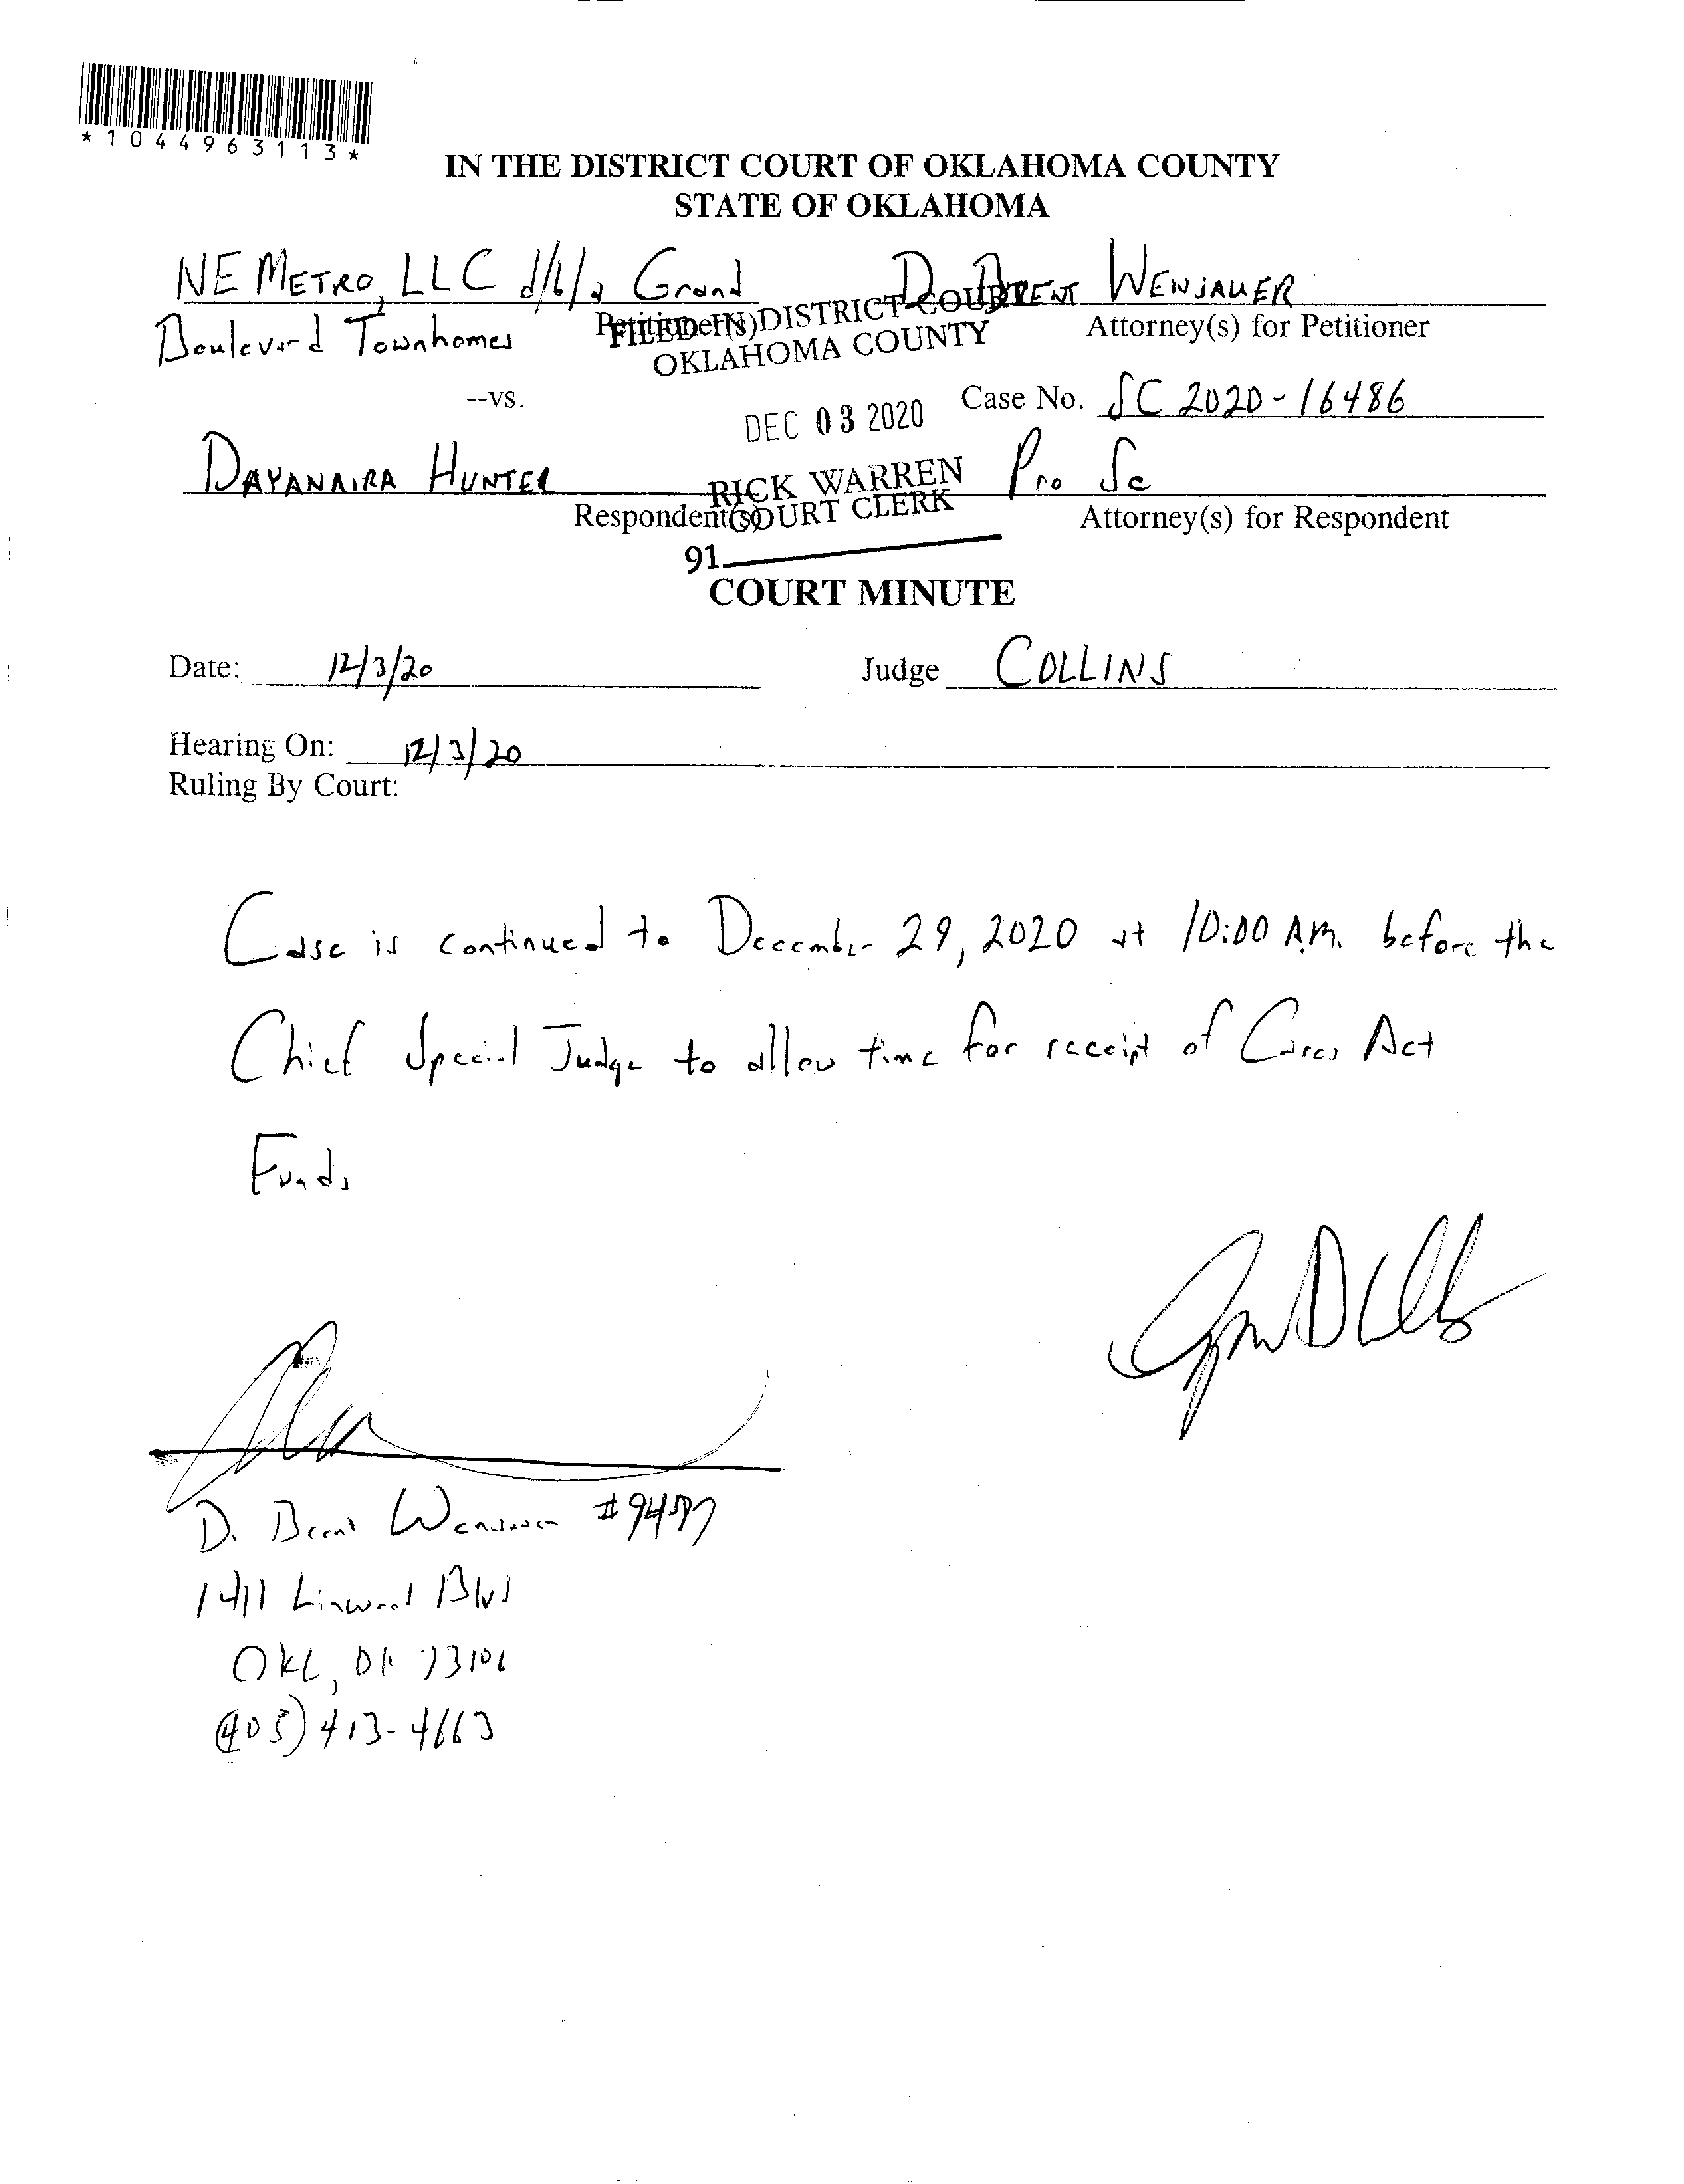 *1044963113*
IN THE DISTRICT COURT OF OKLAHOMA COUNTY
STATE OF OKLAHOMA
NE METRO, LLC d/b/a Grand
Boulevard Townhomes
Petitioner(s)
D. BRENT WENSAUER
Attorney(s) for Petitioner
FILED IN DISTRICT COURT
OKLAHOMA COUNTY
--vs.
DEC 03 2020
Case No. SC 2020-16486
DAYANAIRA HUNTER
Respondent(s)
RICK WARREN
COURT CLERK
Pro Se
Attorney(s) for Respondent
91
COURT MINUTE
Date: 12/3/20
Judge COLLINS
Hearing On: 12/3/20
Ruling By Court:
Case is continued to December 29, 2020 at 10:00 A.M. before the
Chief Special Judge to allow time for receipt of Cares Act
Funds
D. Brent Wensauer
1411 Linwood Blvd
OKC, OK 73106
(405) 413-4663